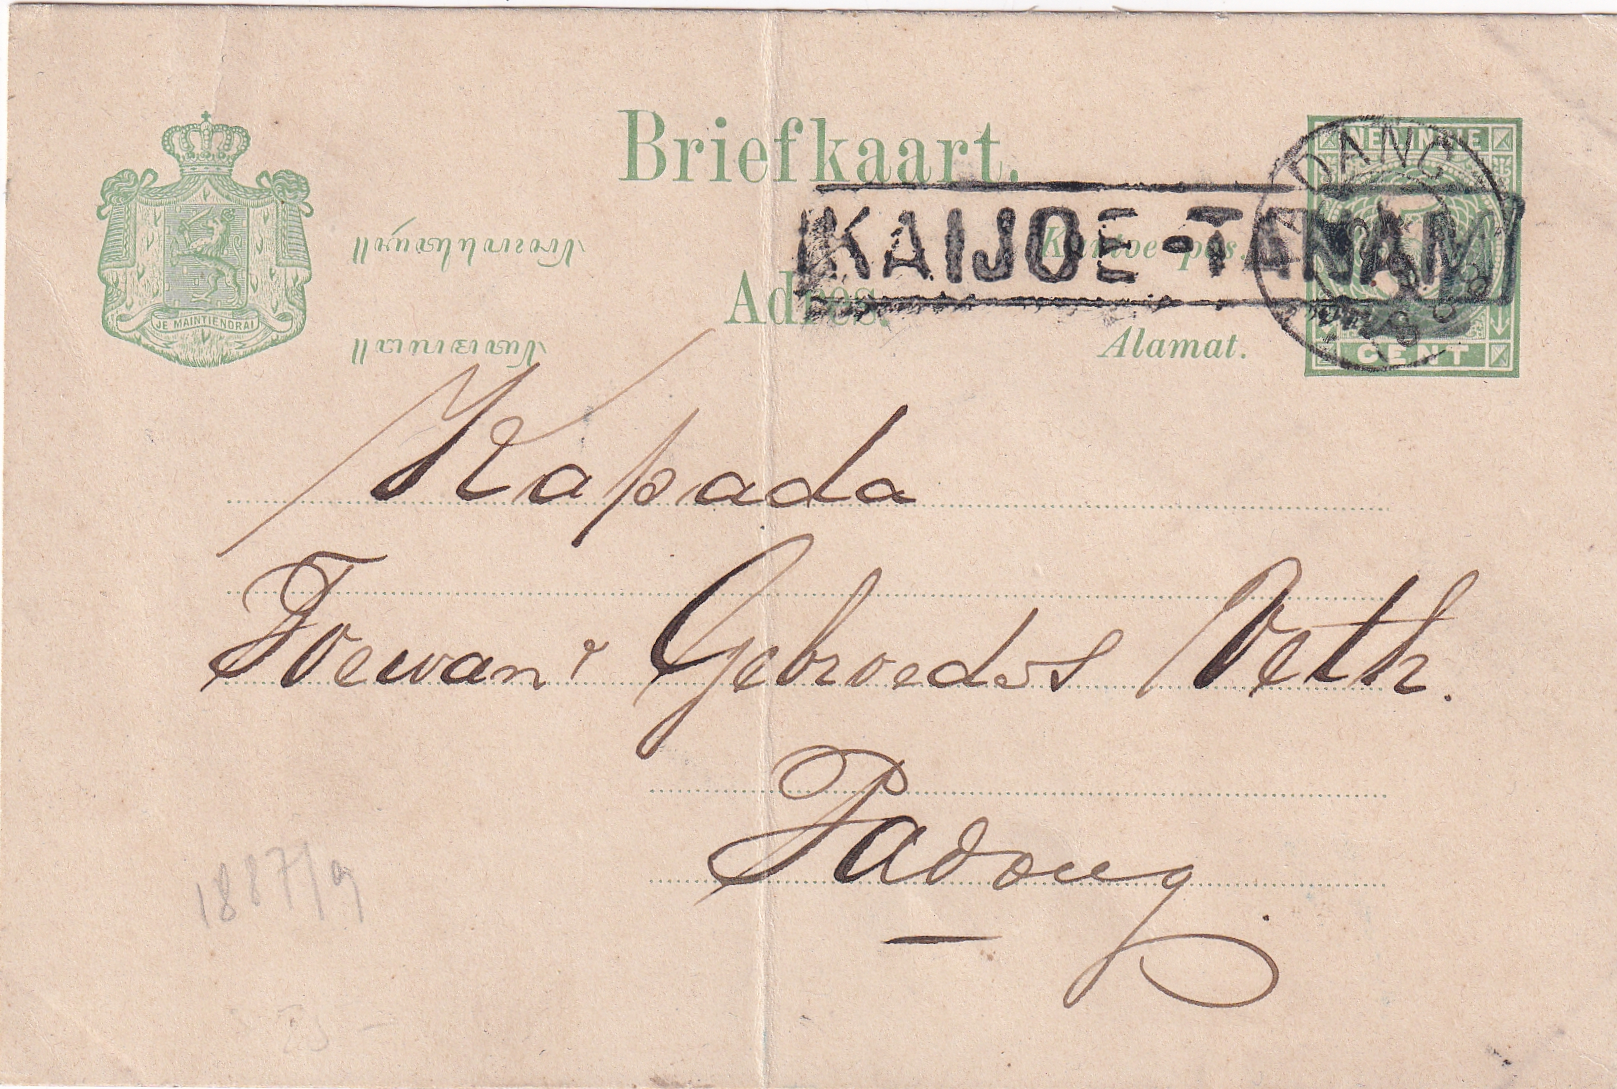 Briefkaart.
KAIJOE-TANAM
Kantoe pos.
Adres.
Alamat.
JE MAINTIENDRAI
NED. INDIE
CENT
PADANG
Kapada
Toewan² Gebroeders Veth.
Padang
1887/9